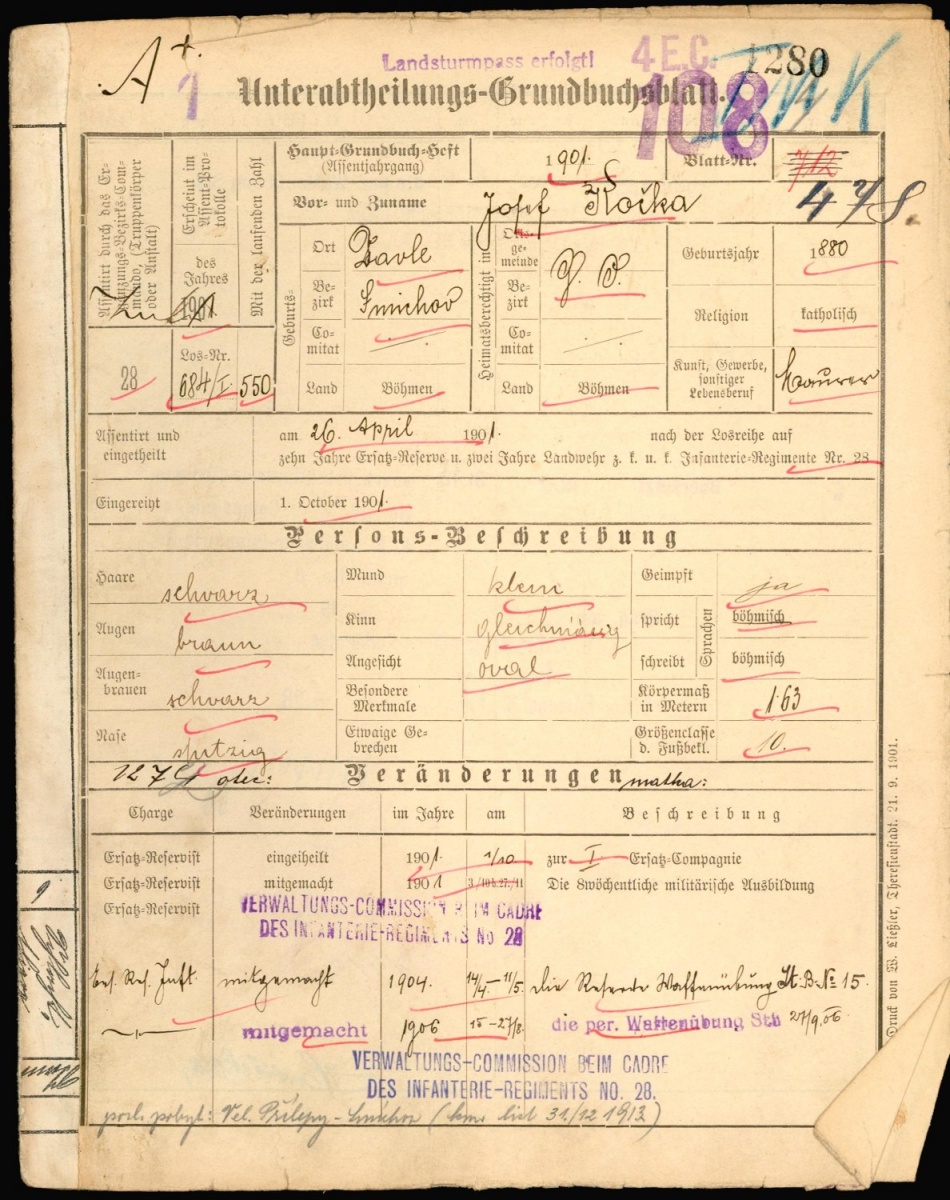 A+
1
Landsturmpass erfolgt!
4 E.C.
108
1280
Unterabtheilungs-Grundbuchsblatt.
Assentirt durch das Ergänzungs-Bezirks-Commando, (Truppenkörper oder Anstalt)
28
Erscheint im Assent-Protokolle
des Jahres
1901
Los-Nr.
684/I
Mit der laufenden Zahl
550
Haupt-Grundbuch-Heft
(Assentjahrgang)
1901.
Blatt-Nr.
712
478.
Vor- und Zuname
Josef Kočka
Geburts-
Ort
Davle
Bezirk
Smichov
Comitat
Land
Böhmen
Heimatsberechtigt in
Ortsgemeinde
Bezirk
Comitat
Land
Böhmen
Geburtsjahr
1880
Religion
katholisch
Kunst, Gewerbe, sonstiger Lebensberuf
Maurer
Assentirt und eingetheilt
am 26. April 1901. nach der Losreihe auf
zehn Jahre Ersatz-Reserve u. zwei Jahre Landwehr z. k. u. k. Infanterie-Regimente Nr. 28
Eingereiht
1. October 1901.
Persons-Beschreibung
Haare
schwarz
Augen
braun
Augenbrauen
schwarz
Nase
spitzig
Mund
klein
Kinn
gleichmässig
Angesicht
oval
Besondere Merkmale
Etwaige Gebrechen
Geimpft
ja
Sprachen
spricht
böhmisch
schreibt
böhmisch
Körpermaß in Metern
1·63
Größenclasse d. Fußbekl.
10.
otec:
Veränderungen
matka:
Charge Veränderungen im Jahre am Beschreibung
Ersatz-Reservist eingetheilt 1901. 1/10 zur I Ersatz-Compagnie
Ersatz-Reservist mitgemacht 1901 3/10 b. 27./11 Die 8wöchentliche militärische Ausbildung
Ersatz-Reservist
VERWALTUNGS-COMMISSION BEIM CADRE
DES INFANTERIE-REGIMENTS No 28
Ers. Res. Inft. mitgemacht 1904. 14/4 – 11/5. die Reserve Waffenübung St. B. № 15.
mitgemacht 1906 15-27/8. die per. Waffenübung Stb 27/9.06.
VERWALTUNGS-COMMISSION BEIM CADRE
DES INFANTERIE-REGIMENTS NO. 28.
posl. pobyt: Vel. Přílepy - Smíchov (dom. list 31/12 1913)
Druck von W. Ließler, Theresienstadt. 21. 9. 1901.